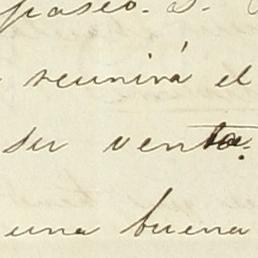 paseo. S.
reunirá el
su venta.
una buena